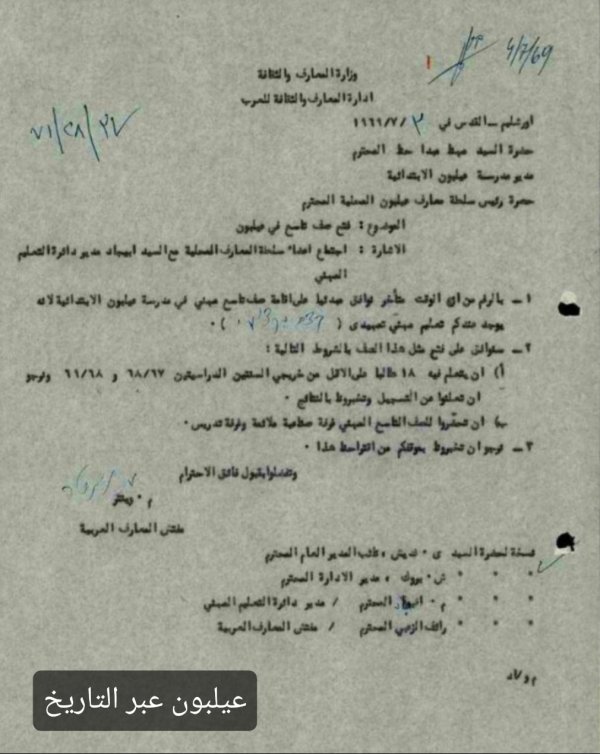 4/7/69
وزارة المعارف والثقافة
ادارة المعارف والثقافة للعرب
اورشليم ــ القدس في ٣ /٧/ ١٩٦٩
٧١/٢٨/٣٧
حضرة السيد عيط عبدا حط المحترم
مدير مدرسة عيلبون الابتدائية
حضرة رئيس سلطة معارف عيلبون المحلية المحترم
الموضوع : فتح صف تاسع في عيلبون
الاشارة : اجتماع اعضاء سلطة المعارف المحلية مع السيد ابيهاد مدير دائرة التعليم
المهني
١ ــ بالرغم من ان الوقت متأخر نوافق مبدئيا على اقامة صف تاسع مهني في مدرسة عيلبون الابتدائية لانه
يوجد عندكم تعليم مهني تمهيدى ( ) ٠
٢ ــ سنوافق على فتح مثل هذا الصف بالشروط التالية :
أ) ان يتعلم فيه ١٨ طالبا على الاقل من خريجي السنتين الدراسيتين ٦٨/٦٧ و ٦٩/٦٨ ونرجو
ان تعملوا عن التسجيل وتخبرونا بالنتائج ٠
ب) ان تحضّروا للصف التاسع المهني غرفة صناعية ملائمة وغرفة تدريس ٠
٣ ــ نرجو ان تخبرونا بموقفكم من اقتراحنا هذا ٠
وتفضلوا بقبول فائق الاحترام
م ٠
مفتش المعارف العربية
نسخة لحضرة السيد ى ٠ نائب المدير العام المحترم
" " " ش ٠ بروك ، مدير الادارة المحترم
" " " م ٠ المحترم / مدير دائرة التعليم المهني
" " " رائف الزعبي المحترم / مفتش المعارف العربية
م و /د
عيلبون عبر التاريخ